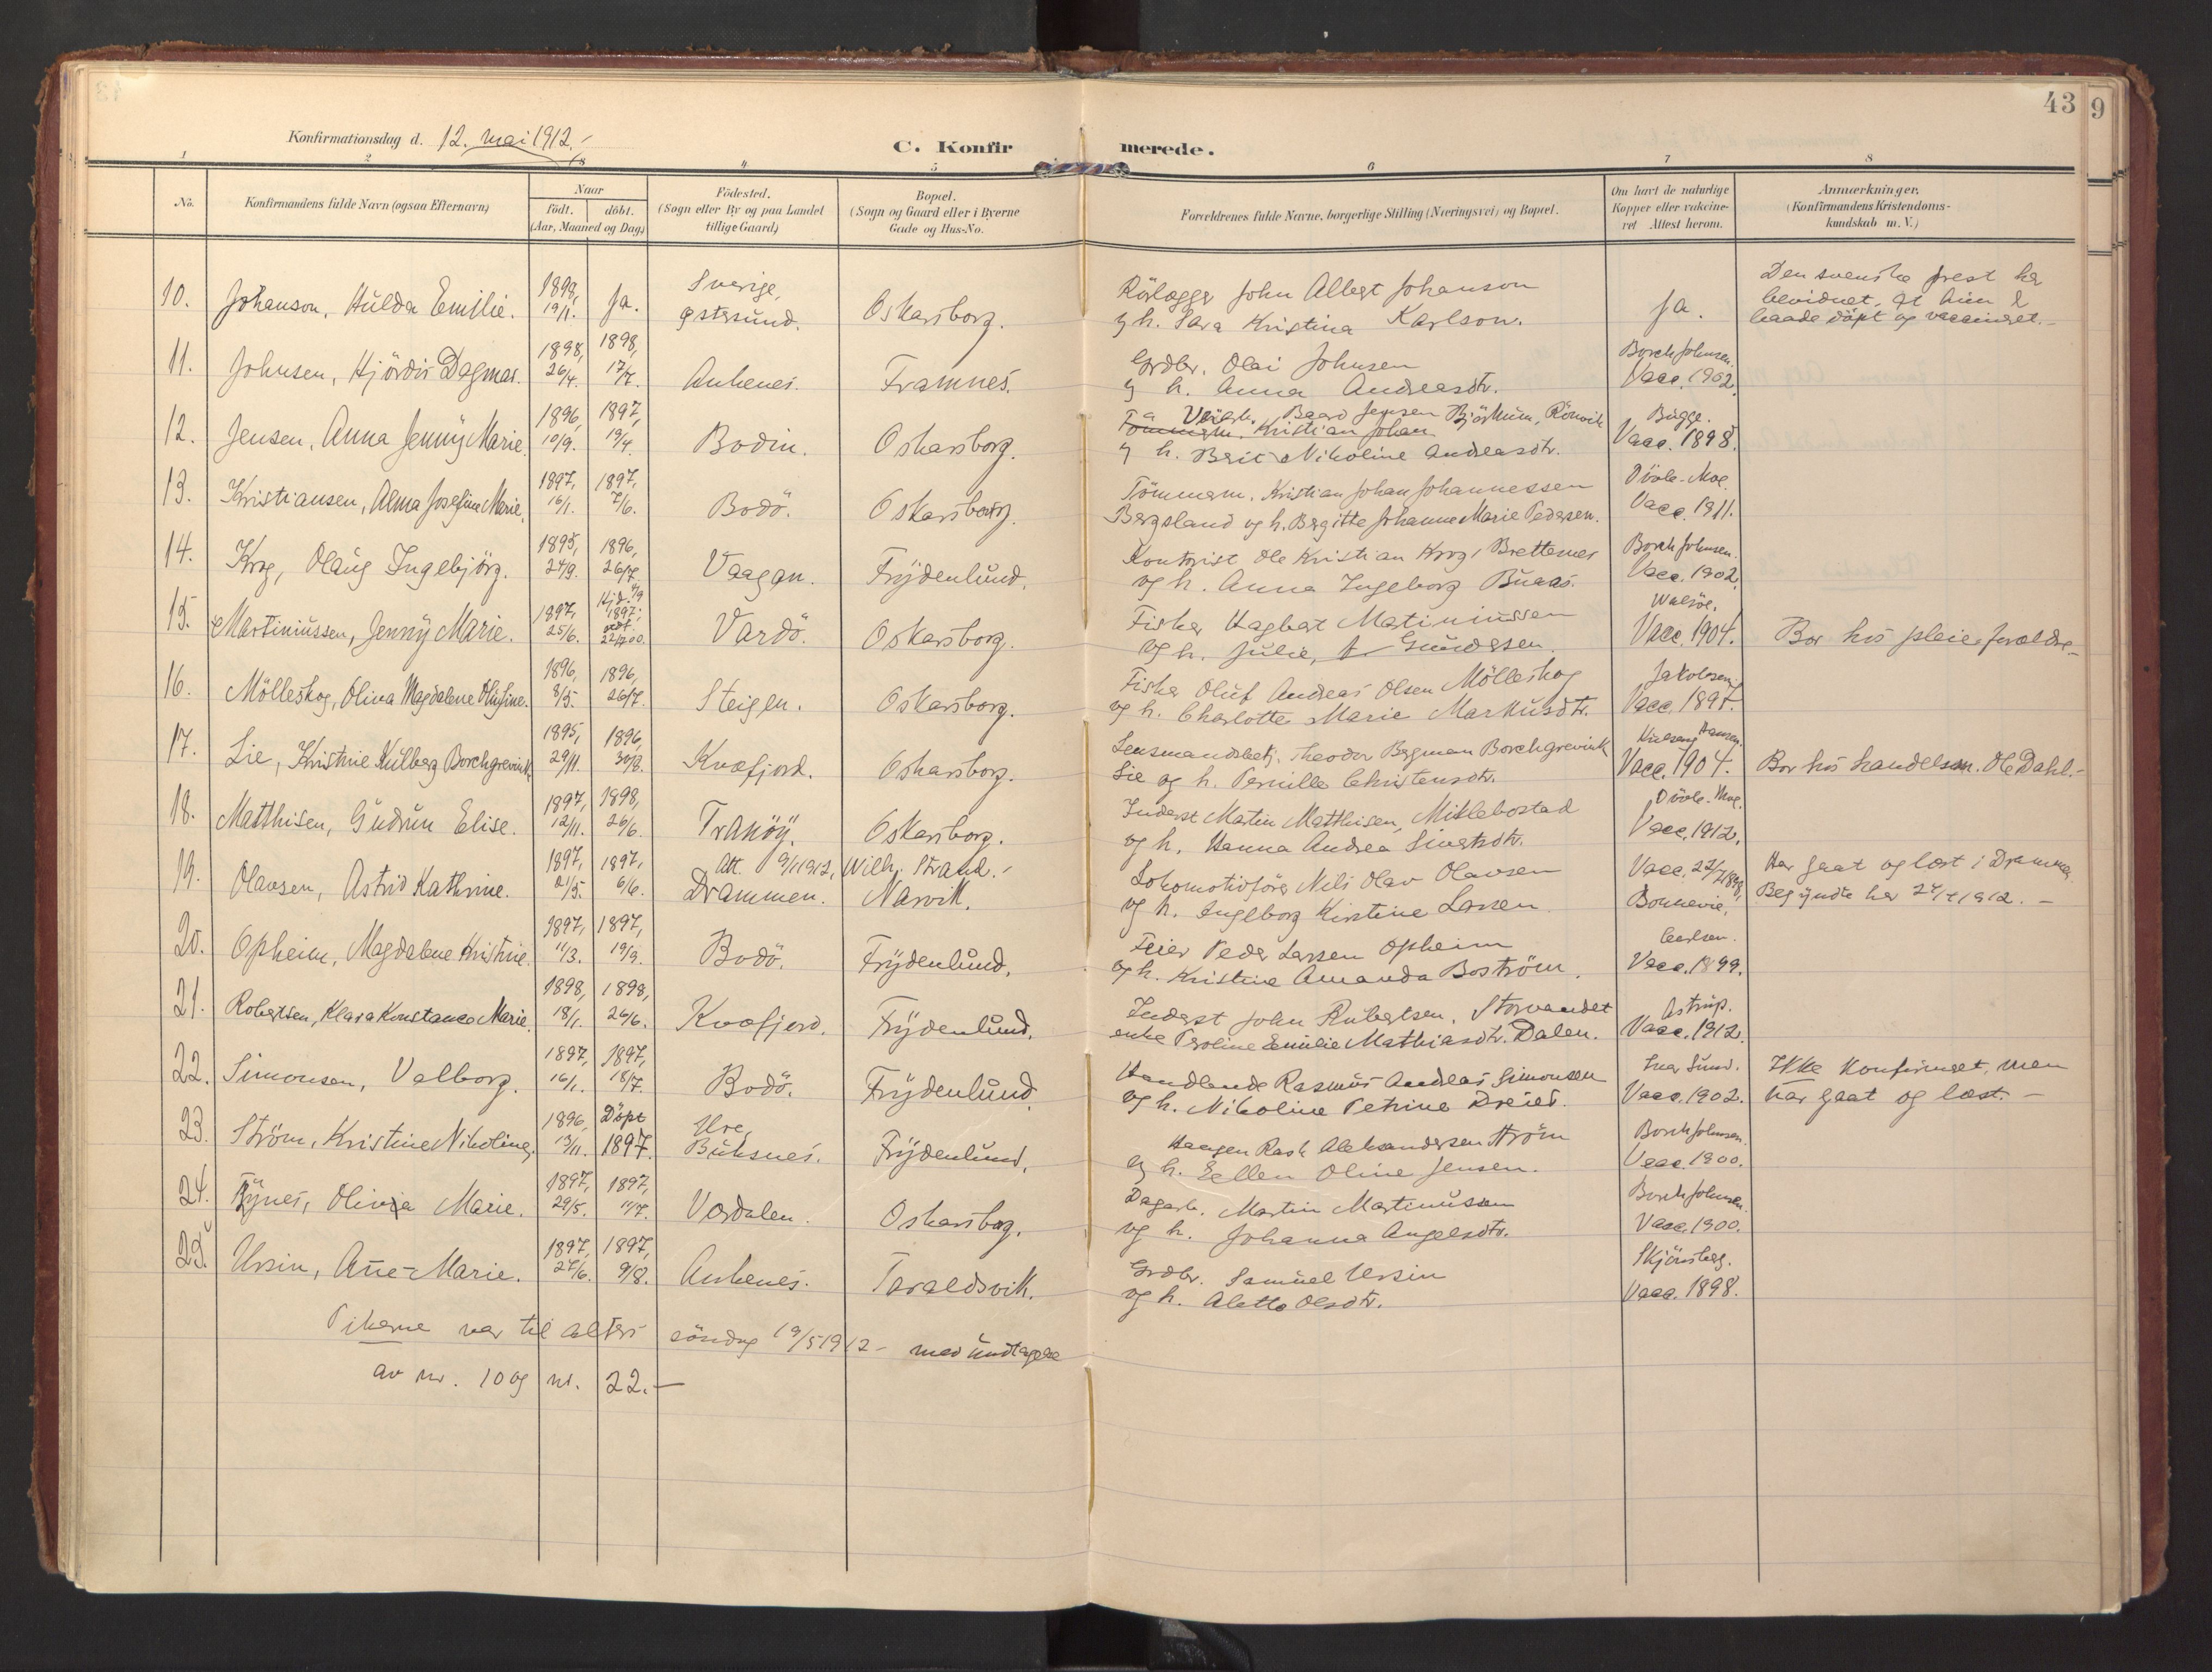 43 9
Konfirmationsdag d. 12. mai 1912.-
C. Konfirmerede.
1 2 3 4 5 6 7 8
No.
Konfirmandens fulde Navn (ogsaa Efternavn)
Naar
födt. döbt.
(Aar, Maaned og Dag)
Födested.
(Sogn eller By og paa Landet
tillige Gaard)
Bopæl.
(Sogn og Gaard eller i Byerne
Gade og Hus-No.
Forældrenes fulde Navne, borgerlige Stilling (Næringsvei) og Bopæl.
Om havt de naturlige
Kopper eller vakcine-
ret Attest herom.
Anmærkninger.
(Konfirmandens Kristendoms-
kundskab m. V.)
10. Johanson, Hulda Emilie. 1898, 19/1. Ja. Sverige, Østersund. Oskarsborg.
Rörlægger John Albert Johanson
og h. Sara Kristina Karlson.
Ja.
Den svenske prest har
bevidnet, at hun er
baade döpt og vaccineret.-
11. Johnsen, Hjördis Dagmar. 1898, 26/4. 1898, 17/7. Ankenes. Framnes.
Grdbr. Olai Johnsen
og h. Anna Andreasdtr.
Borch Johnsen.
Vacc. 1902.
12. Jensen, Anna Jenny Marie. 1896, 10/9. 1897, 19/4. Bodin. Oskarsborg.
Baard Jensen Björkum, Rönvik
Tömmerm. Kristian Johan
og h. Berit Nikoline Andreasdtr.
Bugge.
Vacc. 1898.
13. Kristiansen, Alma Josefine Marie. 1897, 16/1. 1897, 7/6. Bodö. Oskarsborg.
Tömmerm. Kristian Johan Johannessen
Bergsland og h. Bergitte Johanne Marie Pedersen.
Vacc. 1911.
14. Krog, Olaug Ingebjörg. 1895, 24/9. 1896, 26/7. Vaagan. Frydenlund.
Kontorist Ole Kristian Krog, Brettesnes
og h. Anna Ingeborg Buaas.
Borch Johnsen.
Vacc. 1902.
15. Martiniussen, Jenny Marie. 1897, 25/6. 1897; Vardö. Oskarsborg.
Fisker Hagbart Martiniussen
og h. Julie, f. Gundersen.
Vacc. 1904.
Bor hos pleieforældre.-
16. Mölleskog, Oliva Magdalene Olufine. 1896, 8/5. 1896, 26/7. Steigen. Oskarsborg.
Fisker Oluf Andreas Olsen Mölleskog
og h. Charlotte Marie Markusdtr.
Jakobsen,
Vacc. 1897.
17. Lie, Kristine Kulberg Borchgrevink. 1895, 29/11. 1896, 30/8. Kvæfjord. Oskarsborg.
Lensmandsbetj. Theodor Bergman Borchgrevink
Lie og h. Pernille Christensdtr.
Hansen.
Vacc. 1904.
Bor hos handelsm. Ole Dahl.-
18. Matthisen, Gudrun Elise. 1897, 12/11. 1898, 26/6. Tranöy. Oskarsborg.
Inderst Martin Matthisen, Miklebostad
og h. Hanna Andrea Sivertsdtr.
Vacc. 1912.
19. Olavsen, Astrid Kathrine. 1897, 21/5. 1897, 6/6. Att. 9/1 1912, Wilh. Strand.- Drammen. Narvik.
Lokomotivförer Nils Olav Olavsen
og h. Ingeborg Kirstine Larsen.
Vacc. 22/7 1898,
Bonnevie.
Har gaat og læst i Drammen.
Begyndte her 24/4 1912.-
20. Opheim, Magdalene Kristine. 1897, 11/3. 1897, 19/9. Bodö. Frydenlund.
Feier Peder Larsen Opheim
og h. Kristine Amanda Boström.
Carlsen.
Vacc. 1899.
21. Robertsen, Klara Konstance Marie. 1898, 18/1. 1898, 26/6. Kvæfjord. Frydenlund.
Inderst John Robertsen, Storvandet
enke Peroline Emilie Mathiasdtr. Dalen.
Astrup.
Vacc. 1912.
22. Simonsen, Valborg. 1897, 16/1. 1897, 18/7. Bodö. Frydenlund.
Handlende Rasmus Andreas Simonsen
og h. Nikoline Petrine Dreier.
Ivar Sund.
Vacc. 1902.
Ikke konfirmeret, men
har gaat og læst.-
23. Ström, Kristine Nikoline. 1896, 13/11. Döpt 1897. Ure, Buksnes. Frydenlund.
Haagen Rask Aleksandersen Ström
og h. Ellen Oline Jensen.
Borch Johnsen.
Vacc. 1900.
24. Rynes, Olivia Marie. 1897, 29/5. 1897, 11/7. Værdalen. Oskarsborg.
Dagarb. Martin Martinussen
og h. Johanna Angelsdtr.
Borch Johnsen.
Vacc. 1900.
25. Ursin, Ane-Marie. 1897, 27/6. 1897, 9/8. Ankenes. Taraldsvik.
Grdbr. Samuel Ursin
og h. Alette Olsdtr.
Skjönsberg.
Vacc. 1898.
Pikerne var til alters söndag 19/5 1912 - med undtagelse
av nr. 10 og nr. 22.-